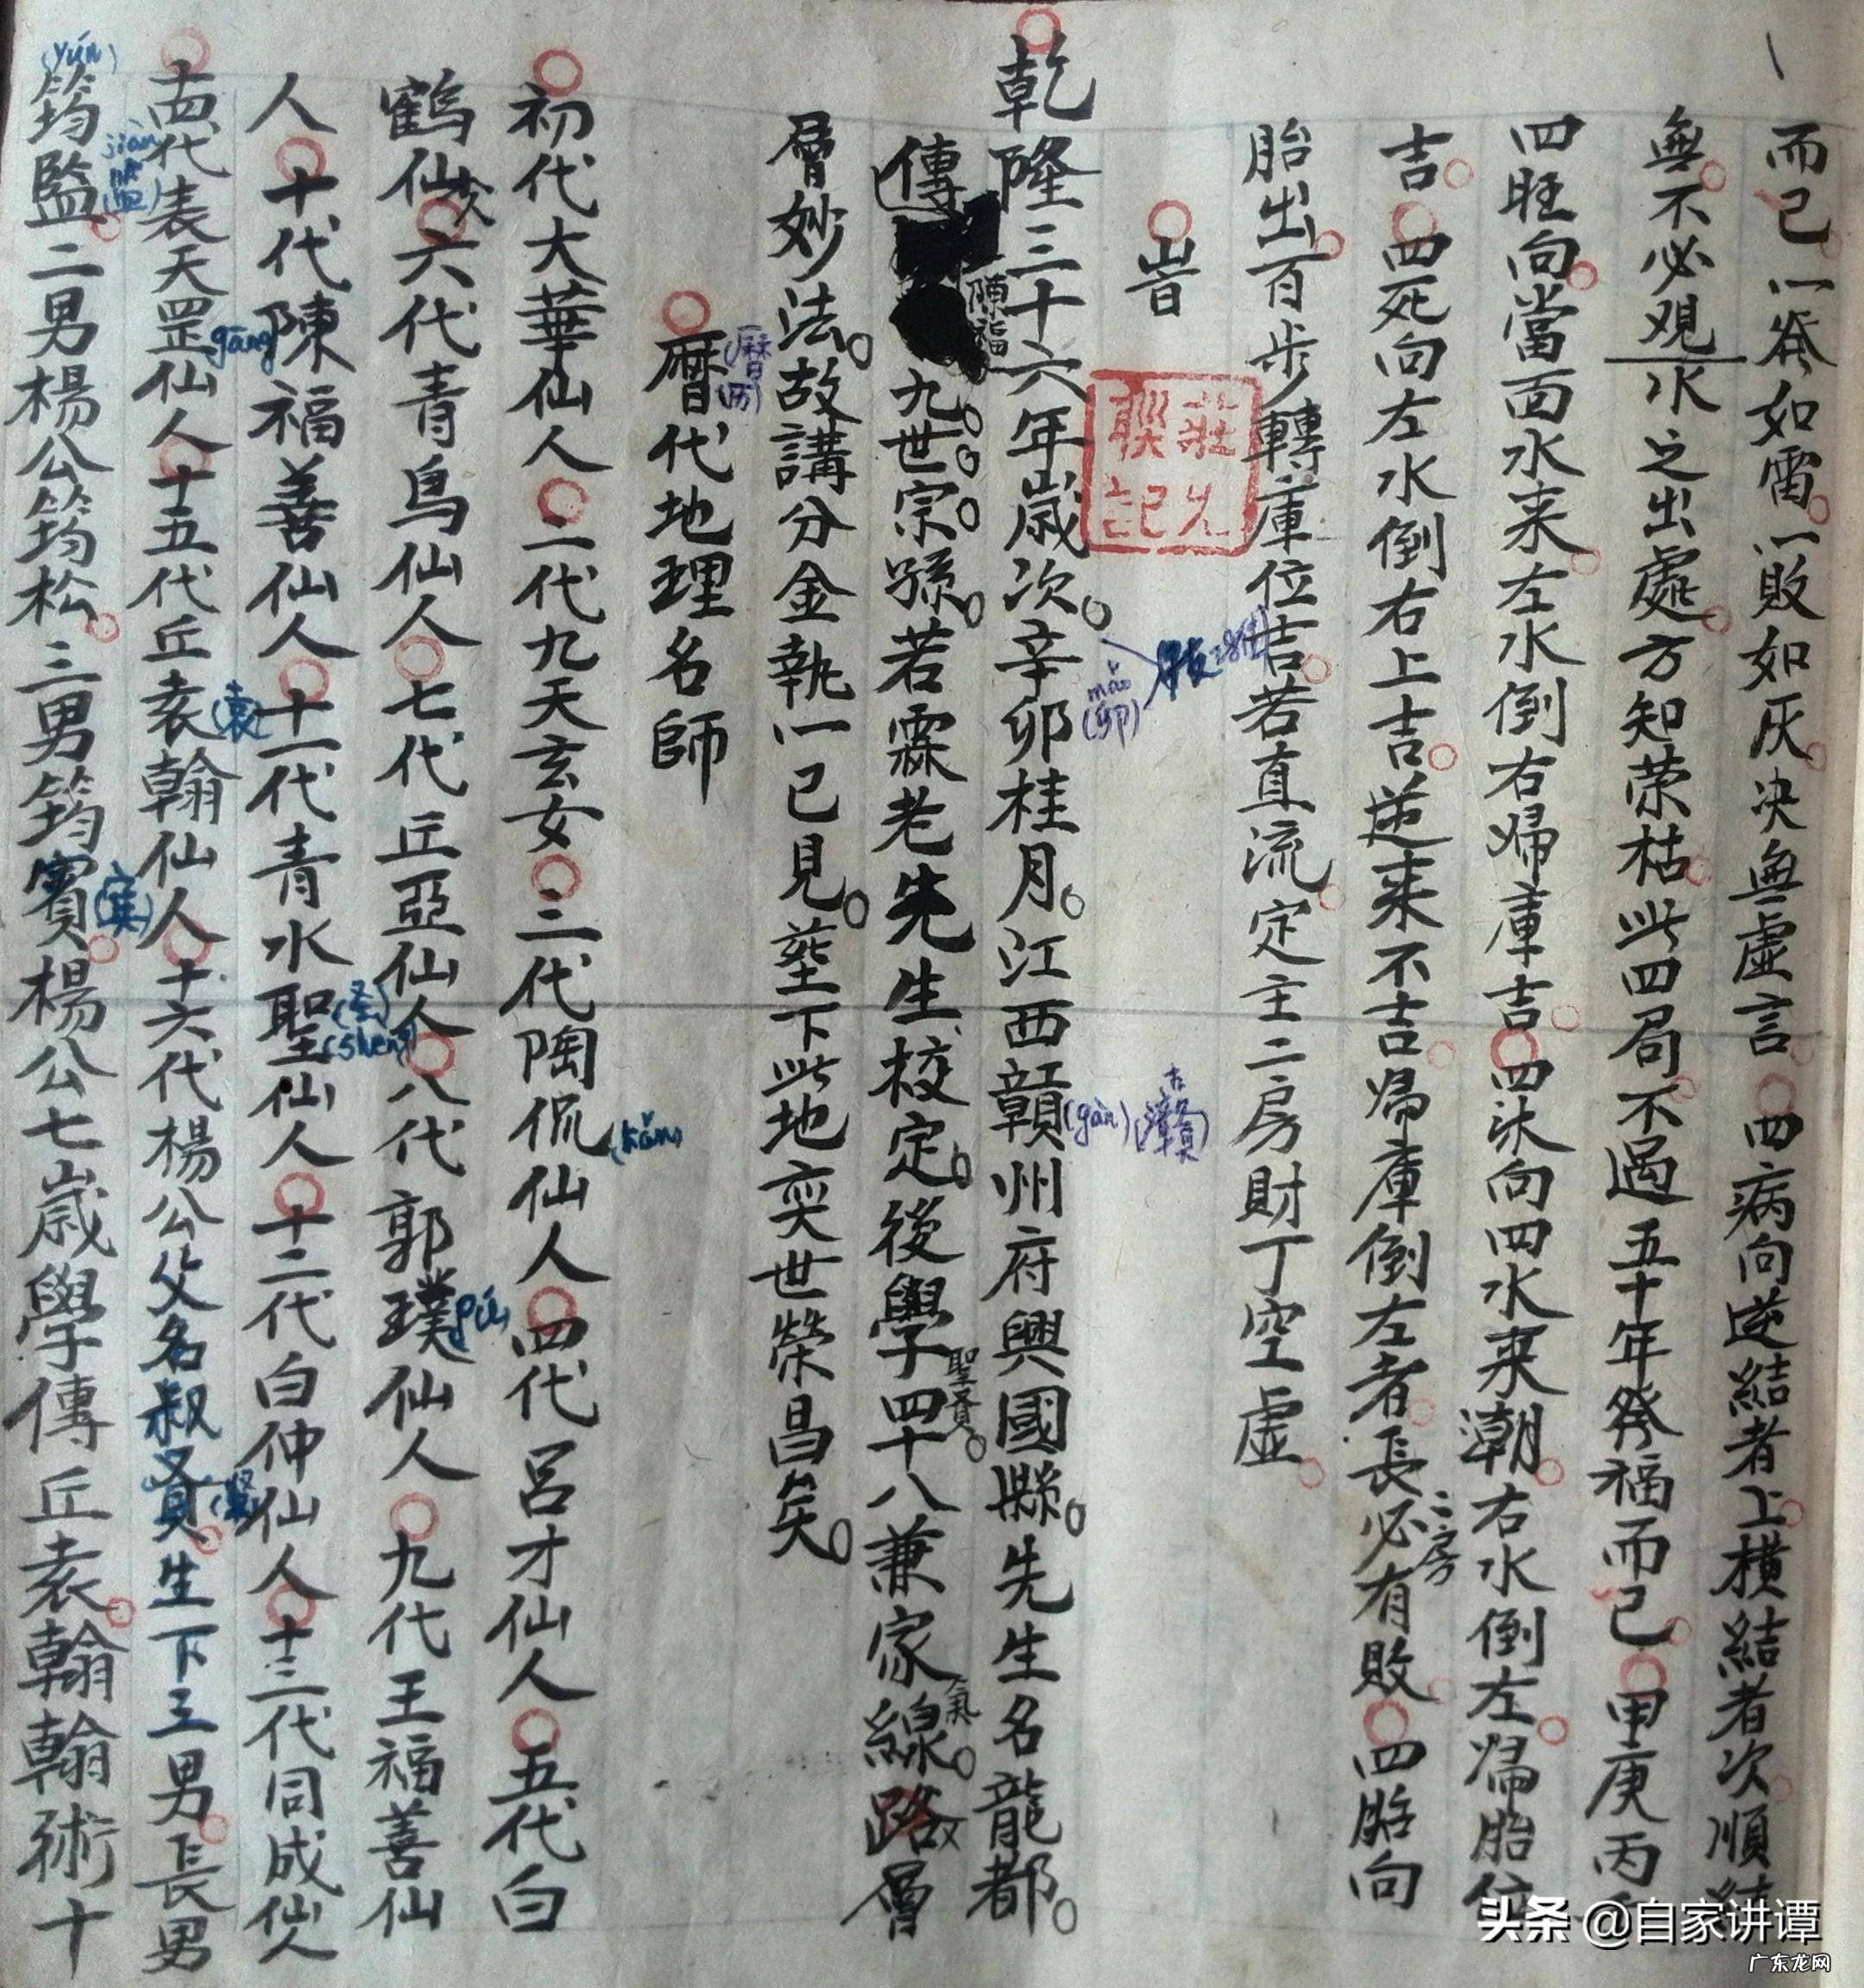 而已一發如雷一敗如灰决無虚言四病向逆結者上横結者次順結
無不必观水之出處方知荣枯此四局不過五十年發福而已甲庚丙
四旺向當面水来左水倒右歸庫吉四沐向四水来潮右水倒左歸胎位
吉四死向左水倒右上吉逆来不吉歸庫倒左者長必有敗四胎向
二房
胎出百步轉庫位吉若直流定主二房財丁空虚
旹
莊兄
聯記
乾隆三十六年歲次辛卯桂月江西贛州府興國縣先生名龍都
mǎo
(卯)
(gàn)
古
傳九世宗孫若霖老先生校定後學四十八兼家線路層
陳福
聖賢
氣
層妙法故講分金執一已見塟下此地奕世榮昌矣
曆代地理名師
(曆
历)
初代大華仙人二代九天玄女三代陶侃仙人四代呂才仙人五代白
(kǎn)
鶴仙六代青鳥仙人七代丘亞仙人八代郭璞仙人九代王福善仙
pú
人十代陳福善仙人十一代青水聖仙人十二代白仲仙人十三代同成仙人
(圣)
(shèng)
十四代袁天罡仙人十五代丘袁翰仙人十六代楊公父名叔賢生下三男長男
gāng
(袁)
(賢)
筠監二男楊公筠松三男筠賓楊公七歲學傳丘袁翰翰術十
(yún)
jiàn
(宾)
头条 @自家讲谭
广东龙网